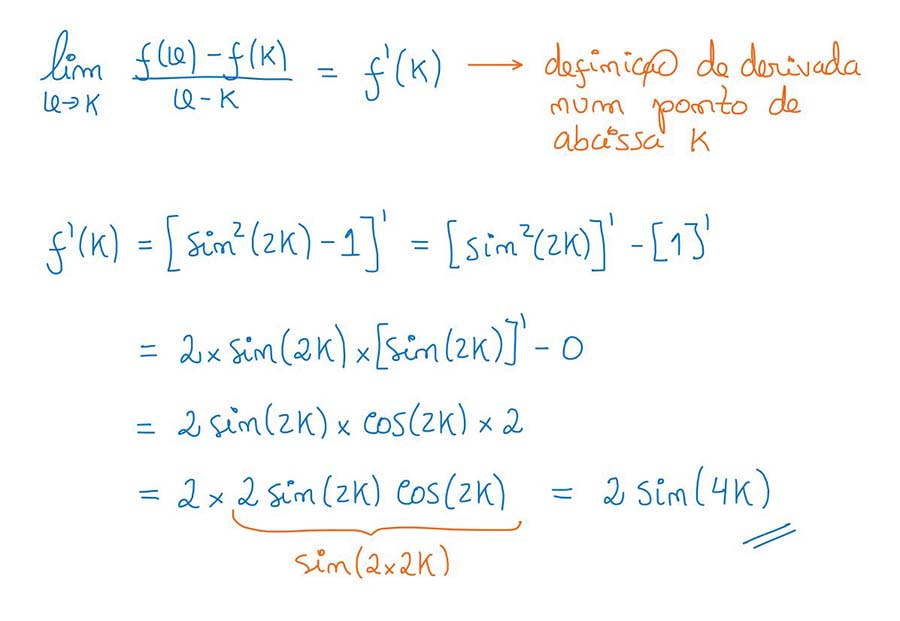 lim f(x) - f(K) / x - K = f'(K) → definição de derivada
x→K num ponto de
abcissa K
f'(K) = [sin²(2K) - 1]' = [sin²(2K)]' - [1]'
= 2 × sin(2K) × [sin(2K)]' - 0
= 2 sin(2K) × cos(2K) × 2
= 2 × 2 sin(2K) cos(2K) = 2 sin(4K)
sin(2×2K)